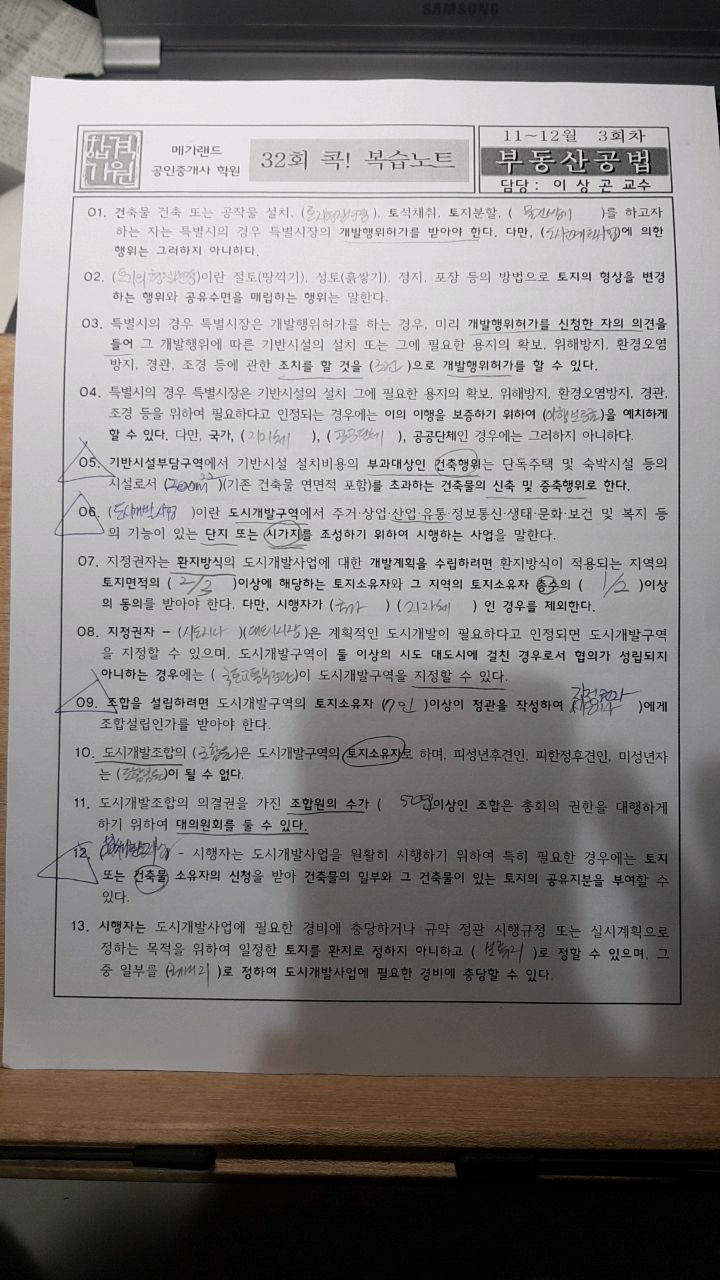 SAMSUNG
합격
가원
메가랜드
공인중개사 학원
32회 콕! 복습노트
11~12월 3회차
부동산공법
담당: 이 상 곤 교수
01. 건축물 건축 또는 공작물 설치, (토지형질변경), 토석채취, 토지분할, ( 물건쌓기 )를 하고자
하는 자는 특별시의 경우 특별시장의 개발행위허가를 받아야 한다. 다만, (도시군계획사업)에 의한
행위는 그러하지 아니하다.
02. (토지의 형질변경)이란 절토(땅깍기), 성토(흙쌓기), 정지, 포장 등의 방법으로 토지의 형상을 변경
하는 행위와 공유수면을 매립하는 행위는 말한다.
03. 특별시의 경우 특별시장은 개발행위허가를 하는 경우, 미리 개발행위허가를 신청한 자의 의견을
들어 그 개발행위에 따른 기반시설의 설치 또는 그에 필요한 용지의 확보, 위해방지, 환경오염
방지, 경관, 조경 등에 관한 조치를 할 것을 (조건)으로 개발행위허가를 할 수 있다.
04. 특별시의 경우 특별시장은 기반시설의 설치 그에 필요한 용지의 확보, 위해방지, 환경오염방지, 경관,
조경 등을 위하여 필요하다고 인정되는 경우에는 이의 이행을 보증하기 위하여 (이행보증금)을 예치하게
할 수 있다. 다만, 국가, ( 지자체 ), ( 공공단체 ), 공공단체인 경우에는 그러하지 아니하다.
05. 기반시설부담구역에서 기반시설 설치비용의 부과대상인 건축행위는 단독주택 및 숙박시설 등의
시설로서 (200m²)(기존 건축물 연면적 포함)를 초과하는 건축물의 신축 및 증축행위로 한다.
06. (도시개발사업 )이란 도시개발구역에서 주거·상업·산업·유통·정보통신·생태·문화·보건 및 복지 등
의 기능이 있는 단지 또는 시가지를 조성하기 위하여 시행하는 사업을 말한다.
07. 지정권자는 환지방식의 도시개발사업에 대한 개발계획을 수립하려면 환지방식이 적용되는 지역의
토지면적의 ( 2/3 )이상에 해당하는 토지소유자와 그 지역의 토지소유자 총수의 ( 1/2 )이상
의 동의를 받아야 한다. 다만, 시행자가 ( 국가 ) ( 지자체 ) 인 경우를 제외한다.
08. 지정권자 - (시도지사 )(대도시시장)은 계획적인 도시개발이 필요하다고 인정되면 도시개발구역
을 지정할 수 있으며, 도시개발구역이 둘 이상의 시도 대도시에 걸친 경우로서 협의가 성립되지
아니하는 경우에는 ( 국토교통부장관)이 도시개발구역을 지정할 수 있다.
09. 조합을 설립하려면 도시개발구역의 토지소유자 (7인 )이상이 정관을 작성하여 지정권자 )에게
조합설립인가를 받아야 한다.
10. 도시개발조합의 (조합원)은 도시개발구역의 토지소유자로 하며, 피성년후견인, 피한정후견인, 미성년자
는 (조합임원)이 될 수 없다.
11. 도시개발조합의 의결권을 가진 조합원의 수가 ( 50인 이상인 조합은 총회의 권한을 대행하게
하기 위하여 대의원회를 둘 수 있다.
12. - 시행자는 도시개발사업을 원활히 시행하기 위하여 특히 필요한 경우에는 토지
또는 건축물 소유자의 신청을 받아 건축물의 일부와 그 건축물이 있는 토지의 공유지분을 부여할 수
있다.
13. 시행자는 도시개발사업에 필요한 경비에 충당하거나 규약 정관 시행규정 또는 실시계획으로
정하는 목적을 위하여 일정한 토지를 환지로 정하지 아니하고 ( 보류지 )로 정할 수 있으며, 그
중 일부를 (체비지 )로 정하여 도시개발사업에 필요한 경비에 충당할 수 있다.